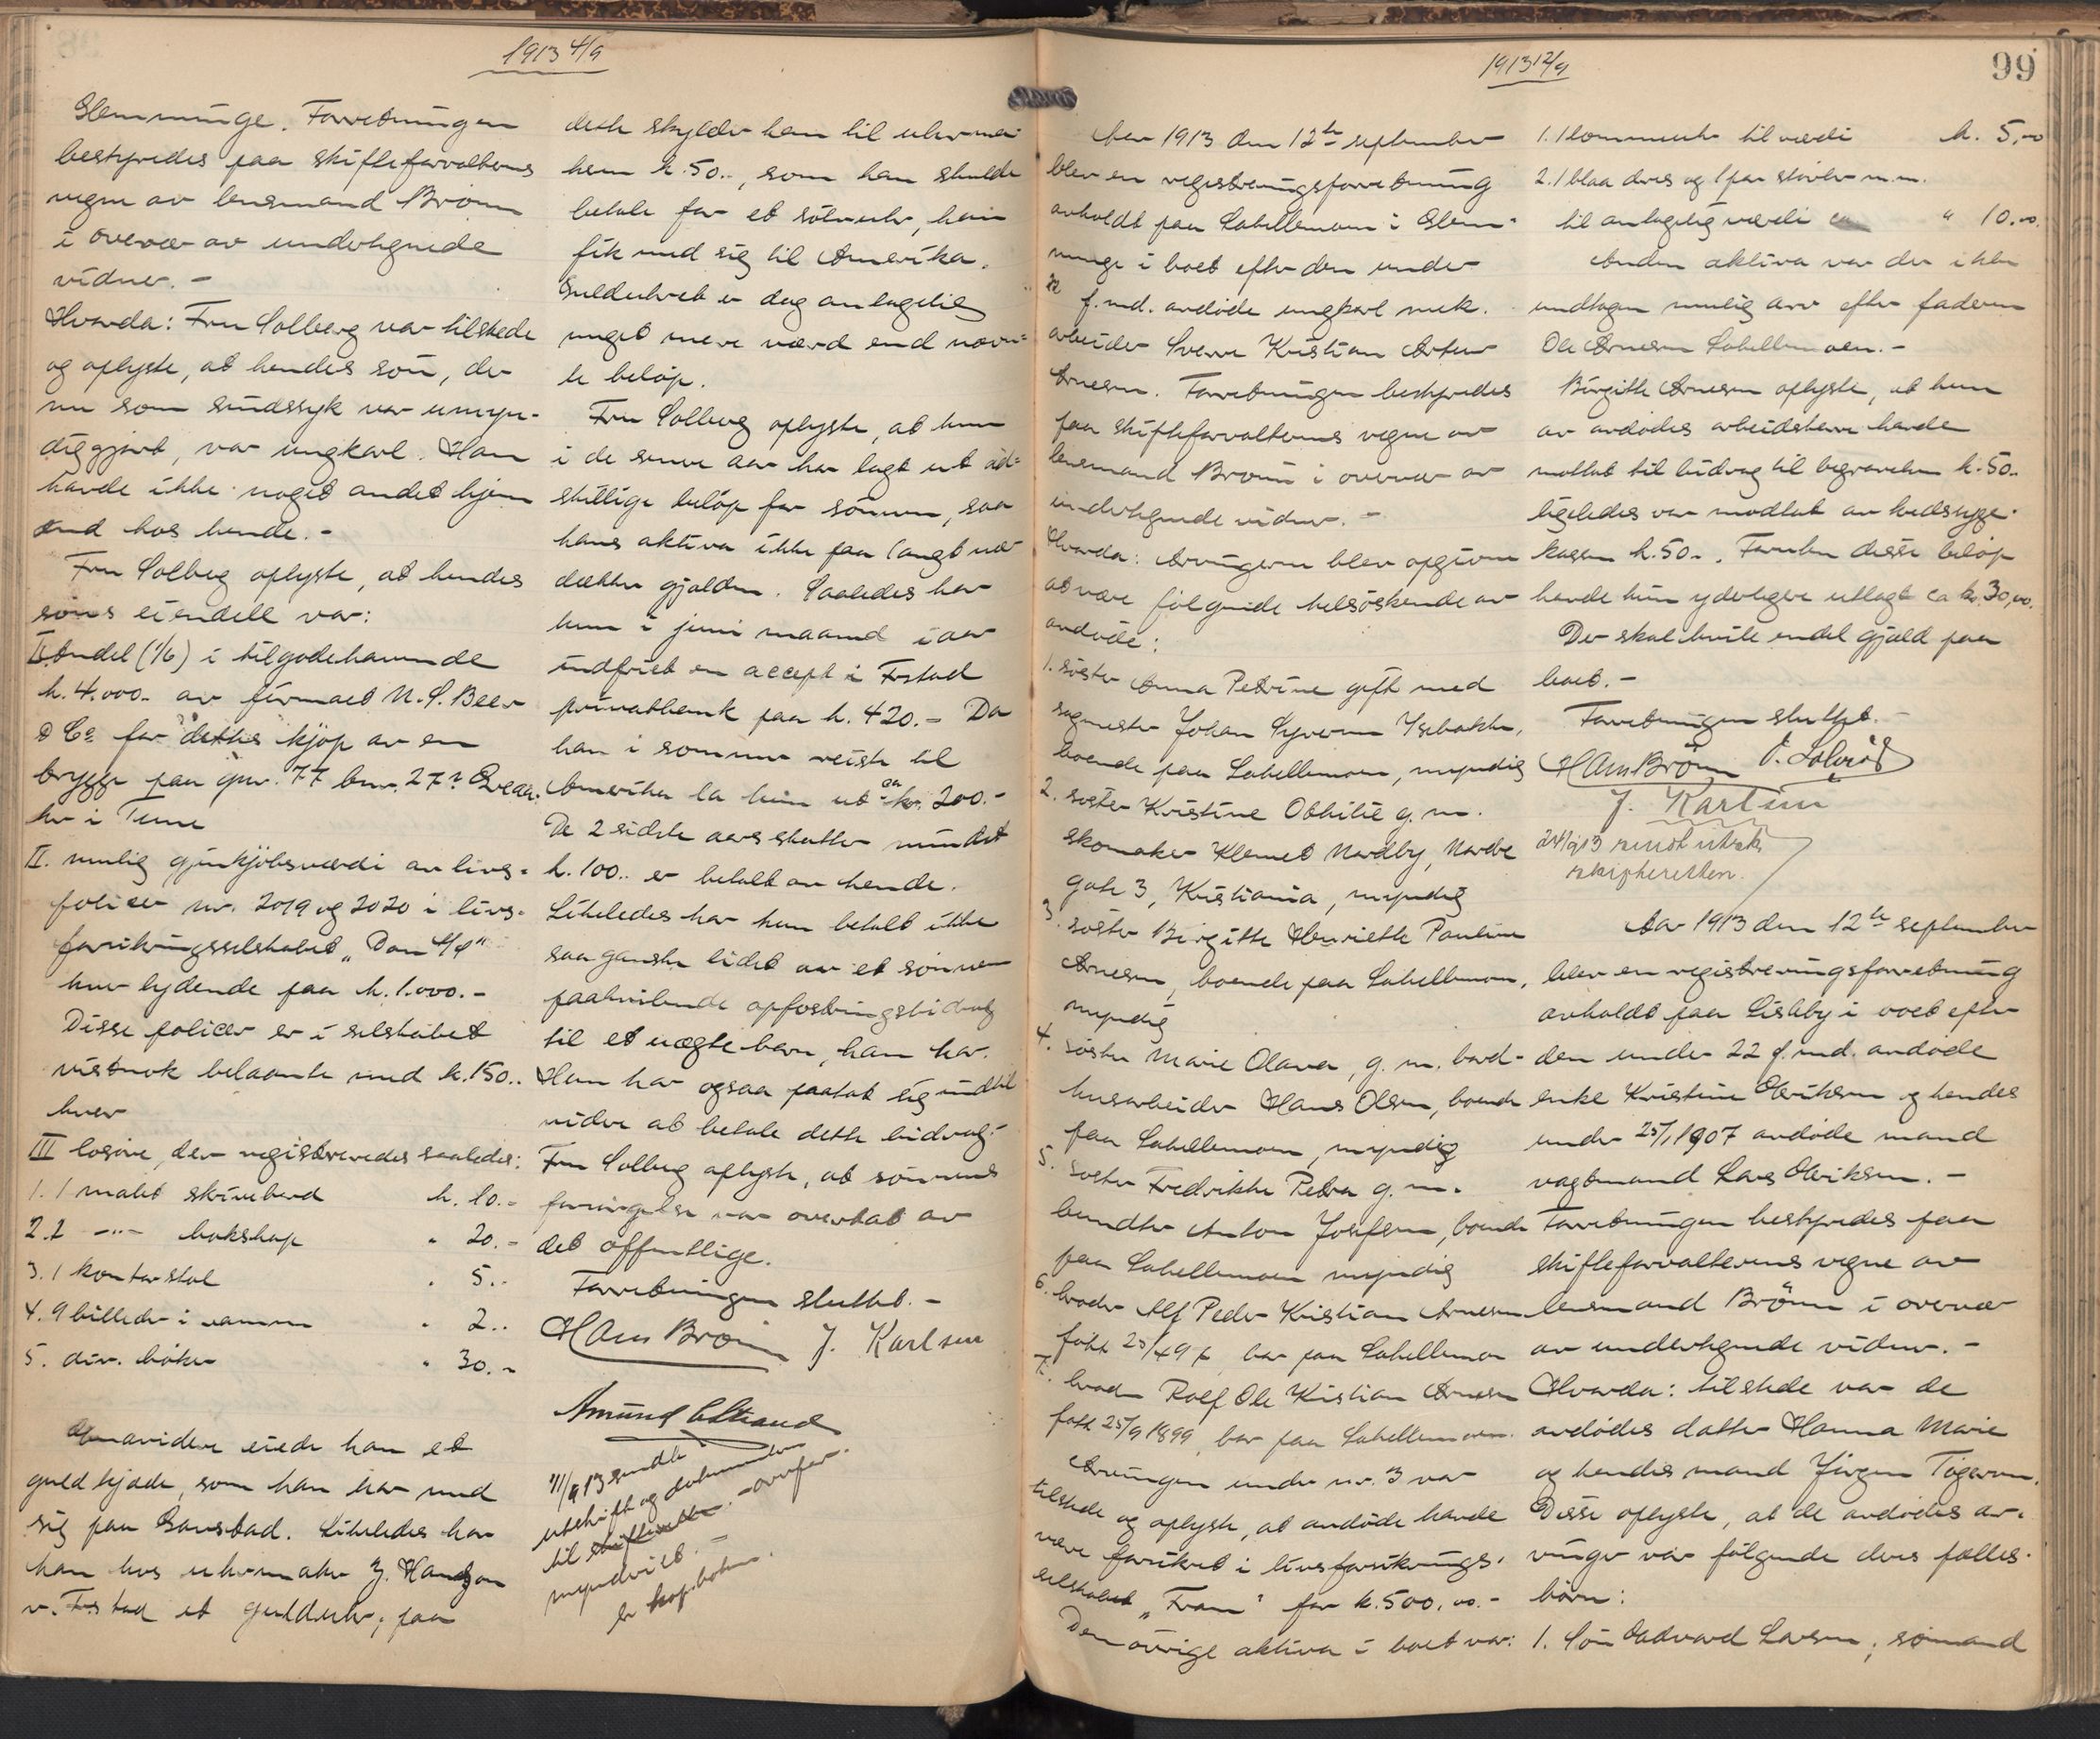 1913 4/9
Glemminge. Forretningen
bestyredes paa skifteforvalterens
vegne av lensmand Brönn
i overvær av undertegnede
vidner. -
Hvorda: Fru Solberg var tilstede
og oplyste, at hendes sön, der
nu som sindssyk var umyn-
diggjort, var ungkarl. Han
havde ikke noget andet hjem
end hos hende. -
Fru Solberg oplyste, at hendes
söns eiendele var:
I Andel (1/6) i tilgodehavende
k. 4.000.- av firmaet N. S. Beer
& Co for dettes kjöp av en
brygge paa gnr. 77 bnr. 27
i Tune
II. mulig gjenkjöbsværdi av livs-
policer nr. 2019 og 2020 i livs-
forsikringsselskabet "Dovre"
hver lydende paa k. 1.000.-
Disse policer er i selskabet
vistnok belaante med k. 150..
hver
III lösöre, der registreredes saaledes:
1. 1 malet skrivebord k. 10.-
2. 2 -"- bokskap " 20.-
3. 1 kontorstol " 5..
4. 9 billeder i ramme " 2..
5. div. böker " 30.-
eiede han et
guldkjæde, som han har med
sig paa Gaustad. Likeledes har
han hos urmaker J. Hansson
v. Fr.stad et guldur, paa
dette skylder han til urma-
keren k. 50.., som han skulde
betale for et sölvur, han
fik med sig til Amerika.
Gulduret er dog antagelig
noget mere værd end nævn-
te belöp.
Fru Solberg oplyste, at hun
i de senere aar har lagt ut ad-
skillige belöp for sönnen, saa
hans aktiva ikke paa langt nær
dækker gjælden. Saaledes har
hun i juni maaned iaar
indfriet en accept i Fr.stad
privatbank paa k. 420.- Da
han i sommer reiste til
Amerika la hun ut ca kr. 200.-
De 2 sidste aars skatter mindst
k. 100.. er betalt av hende.
Likeledes har hun betalt ikke
saa ganske lidet av et sönnen
paahvilende opfostringsbidrag
til et uægte barn, han har.
Hun har ogsaa paatat sig indtil
videre at betale dette bidrag.
Fru Solberg oplyste, at sönnens
forsörgelse var overtat av
det offentlige.
Forretningen sluttet. -
H Am Brönn J. Karlsen
Amund Strand
11/9 13 sendt
utskrift og dokumenter
til skifteretten. - overfor.
-
se kopiboken.
1913 12/9
99
Aar 1913 den 12te september
blev en registreringsforretning
avholdt paa Labellmoen i Glem-
minge i boet efter den under
f. md. avdöde ungkarl mek.
arbeider Sverre Kristian Artur
Arnesen. Forretningen bestyredes
paa skifteforvalterens vegne av
lensmand Brönn i overvær av
undertegnede vidner. -
Hvorda: Arvingerne blev opgivne
at være fölgende helsöskende av
avdöde:
1. söster Anna Petrine gift med
sagmester Johan Syversen Isebakke,
boende paa Labellmoen, myndig
2. söster Kristine Othilie g. m.
skomaker Klemet Nordby, Nordre
gate 3, Kristiania, myndig
3. söster Birgitte Henriette Pauline
Arnesen, boende paa Labellmoen,
myndig
4. söster Marie Olava, g. m. bord-
husarbeider Hans Olsen, boende
paa Labellmoen, myndig
5. söster Fredrikke Petra g. m.
bundter Anton Josefsen, boende
paa Labellmoen myndig
6. broder Alf Peder Kristian Arnesen
födt bor paa Labellmoen
7. broder Rolf Ole Kristian Arnesen
födt 25/9 1899, bor paa Labellmoen.
Arvingen under nr. 3 var
tilstede og oplyste, at avdöde havde
være forsikret i livsforsikrings-
selskabet "Fram" for k. 500.00.-
Den övrige aktiva i boet var:
1. 1 lommeur til værdi k. 5.00
2. 1 blaa dres og 1 par stövler m.m.
til antagelig værdi " 10.00.
Anden aktiva var der ikke
undtagen mulig arv efter faderen
Ole Arnesen Labellmoen. -
Birgitte Arnesen oplyste, at hun
av avdödes arbeidsherre havde
mottat til bidrag til begravelsen k. 50.-
ligeledes var modtat av kredssyge-
kassen k. 50.-. Foruten disse belöp
havde hun yderligere utlagt ca kr. 30,00.
Der skal hvile endel gjæld paa
boet. -
Forretningen sluttet. -
H Am Brönn
J. Karlsen
24/9 13 sendt utskr.
skifteretten.
Aar 1913 den 12te september
blev en registreringsforretning
avholdt paa Lisleby i boet efter
den under 22 f. md. avdöde
enke Kristine Olriksen og hendes
under 25/1 1907 avdöde mand
vagtmand Lars Olriksen. -
Forretningen bestyredes paa
skifteforvalterens vegne av
lensmand Brönn i overvær
av undertegnede vidner. -
Hvorda: tilstede var de
avdödes datter Hanna Marie
og hendes mand Jörgen Togersen.
Disse oplyste, at de avdödes ar-
vinger var fölgende deres fælles-
börn:
1. Sön Edvard Larsen, sömand